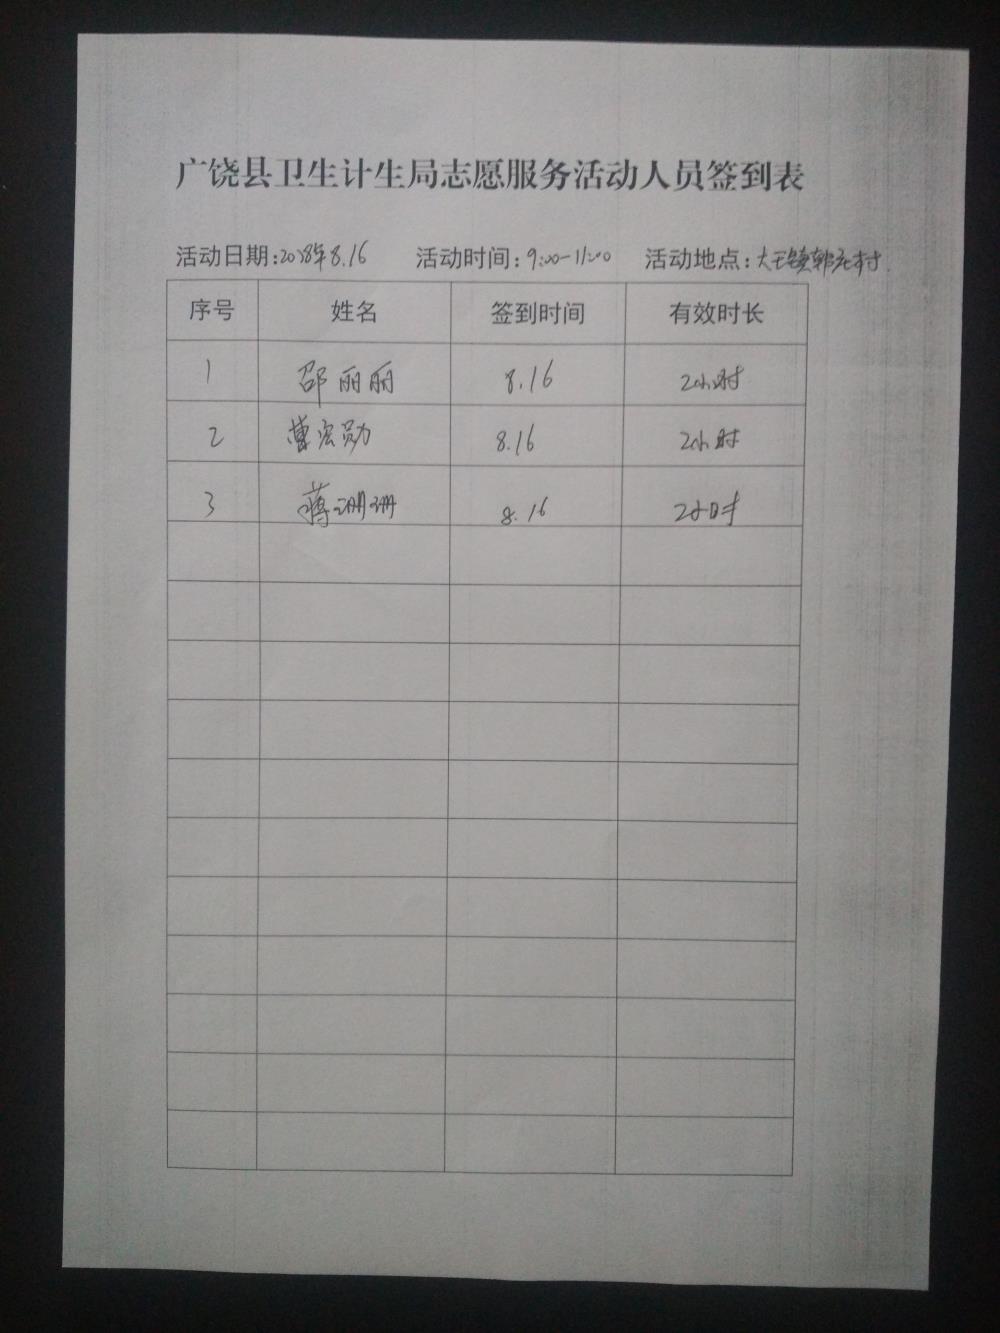 广饶县卫生计生局志愿服务活动人员签到表
活动日期:2018年8.16 活动时间:9:00-11:00 活动地点:大王镇郭庄村.
序号 姓名 签到时间 有效时长
1 邵丽丽 8.16 2小时
2 曹宏勋 8.16 2小时
3 蒋珊珊 8.16 2小时